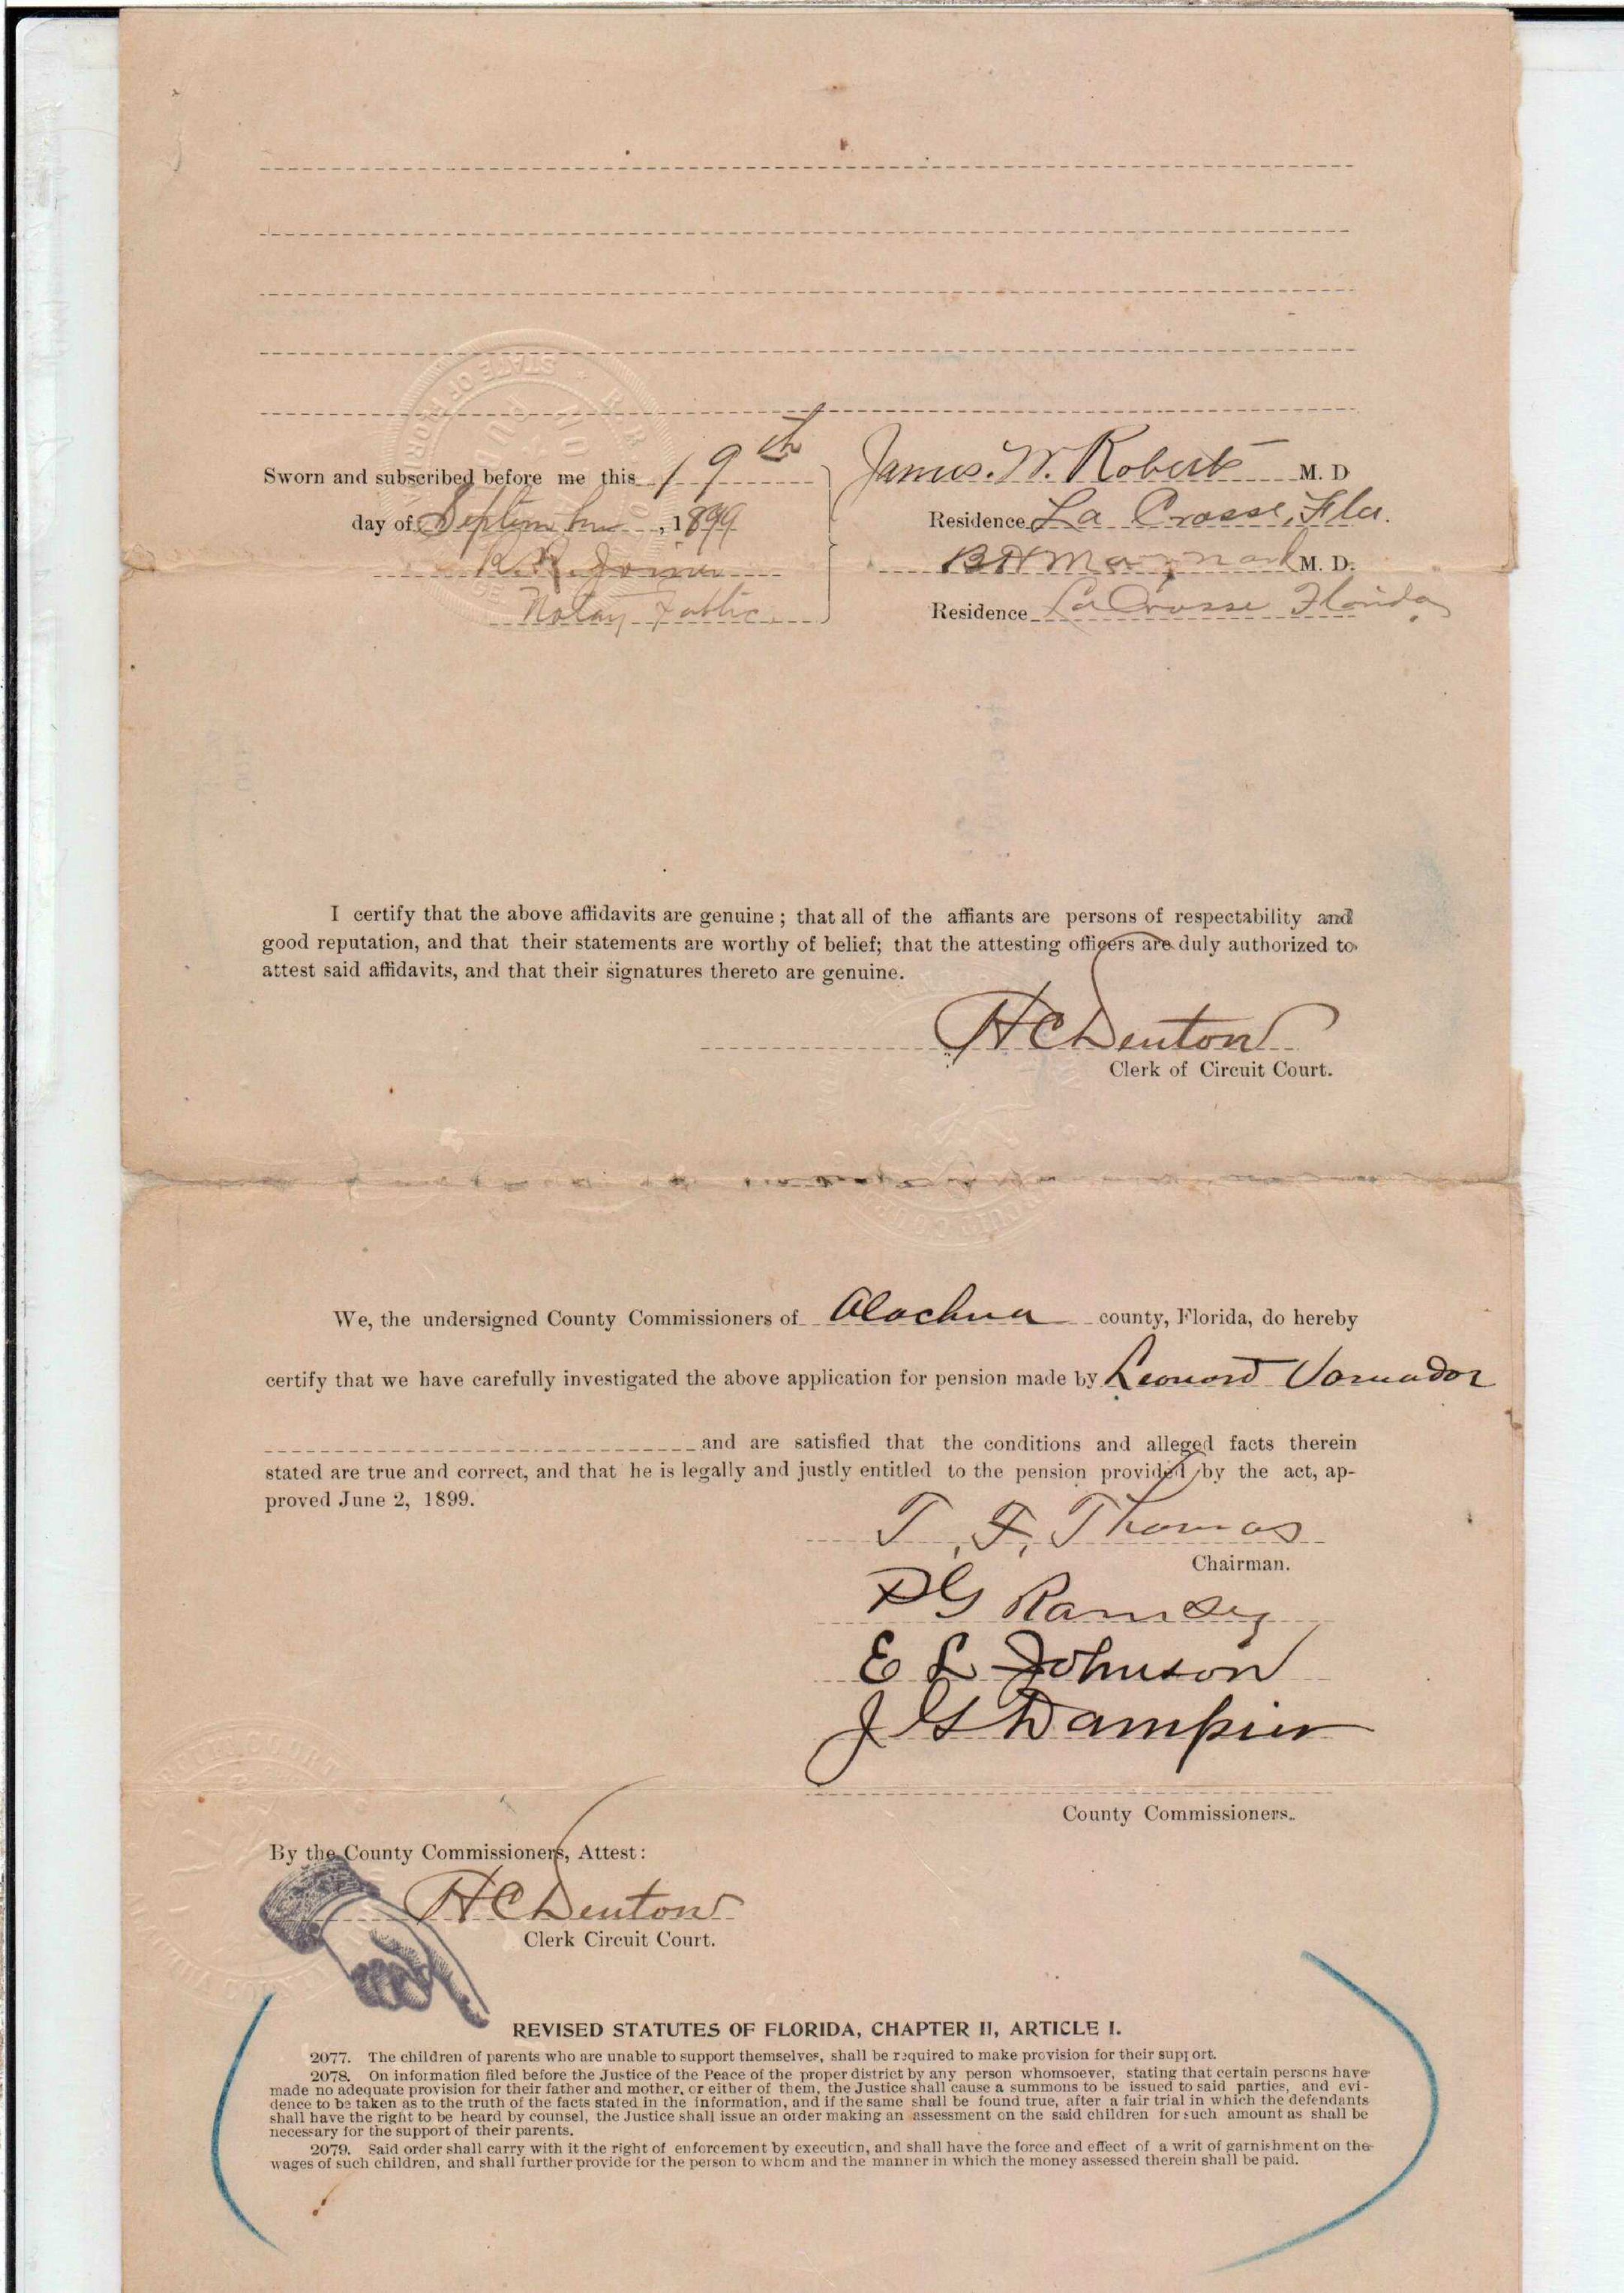 Sworn and subscribed before me this 19th
James. W. Roberts M. D
day of September, 1899
Residence La Crosse, Fla.
R. R. Joiner
B H Maynard M. D.
Notary Public.
Residence LaCrosse Florida
I certify that the above affidavits are genuine; that all of the affiants are persons of respectability and
good reputation, and that their statements are worthy of belief; that the attesting officers are duly authorized to
attest said affidavits, and that their signatures thereto are genuine.
H C Denton
Clerk of Circuit Court.
We, the undersigned County Commissioners of Alachua county, Florida, do hereby
certify that we have carefully investigated the above application for pension made by Leonard Varnador
and are satisfied that the conditions and alleged facts therein
stated are true and correct, and that he is legally and justly entitled to the pension provided by the act, ap-
proved June 2, 1899.
T. F. Thomas
Chairman.
P G Ramsey
E L Johnson
J G Dampier
County Commissioners.
By the County Commissioners, Attest:
H C Denton
Clerk Circuit Court.
REVISED STATUTES OF FLORIDA, CHAPTER II, ARTICLE I.
2077. The children of parents who are unable to support themselves, shall be required to make provision for their support.
2078. On information filed before the Justice of the Peace of the proper district by any person whomsoever, stating that certain persons have
made no adequate provision for their father and mother, or either of them, the Justice shall cause a summons to be issued to said parties, and evi-
dence to be taken as to the truth of the facts stated in the information, and if the same shall be found true, after a fair trial in which the defendants
shall have the right to be heard by counsel, the Justice shall issue an order making an assessment on the said children for such amount as shall be
necessary for the support of their parents.
2079. Said order shall carry with it the right of enforcement by execution, and shall have the force and effect of a writ of garnishment on the
wages of such children, and shall further provide for the person to whom and the manner in which the money assessed therein shall be paid.